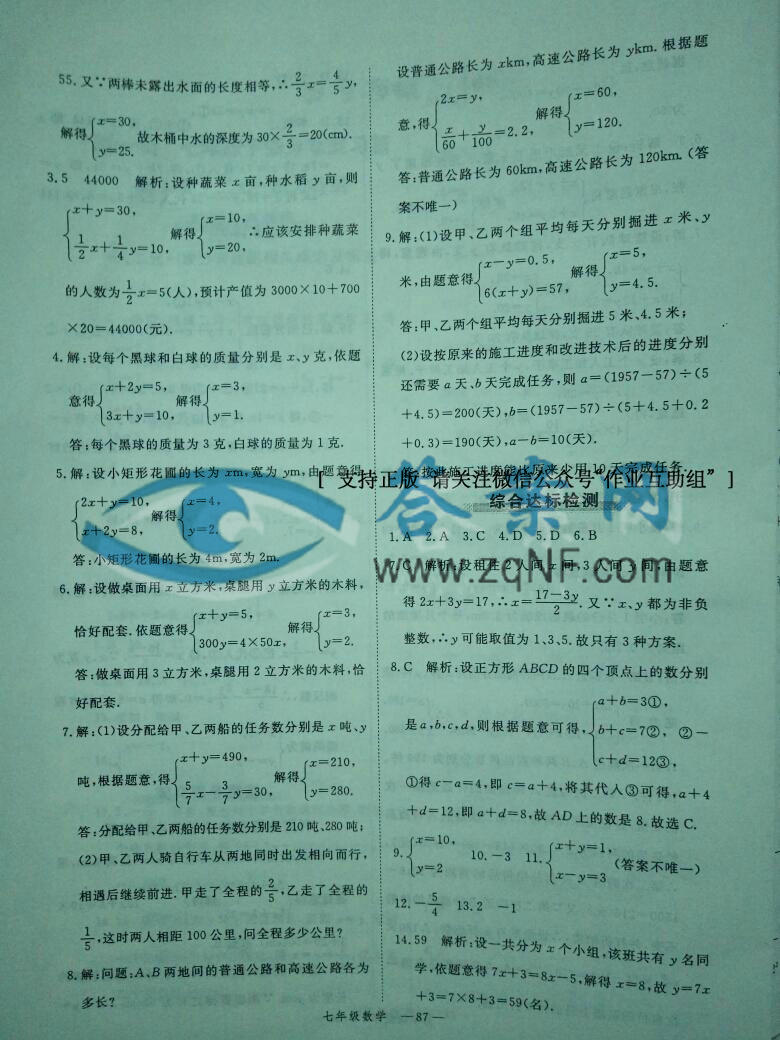 55.又∵两棒未露出水面的长度相等,∴2/3x=4/5y,
解得{x=30, y=25. 故木桶中水的深度为30×2/3=20(cm).
3.5 44000 解析:设种蔬菜x亩,种水稻y亩,则
{x+y=30, 1/2x+1/4y=10, 解得{x=10, y=20, ∴应该安排种蔬菜
的人数为1/2x=5(人),预计产值为3000×10+700
×20=44000(元).
4.解:设每个黑球和白球的质量分别是x、y克,依题
意得{x+2y=5, 3x+y=10, 解得{x=3, y=1.
答:每个黑球的质量为3克,白球的质量为1克.
5.解:设小矩形花圃的长为xm,宽为ym,由题意得
{2x+y=10, x+2y=8, 解得{x=4, y=2.
答:小矩形花圃的长为4m,宽为2m.
6.解:设做桌面用x立方米,桌腿用y立方米的木料,
恰好配套.依题意得{x+y=5, 300y=4×50x, 解得{x=3, y=2.
答:做桌面用3立方米,桌腿用2立方米的木料,恰
好配套.
7.解:(1)设分配给甲、乙两船的任务数分别是x吨、y
吨,根据题意,得{x+y=490, 5/7x-3/7y=30, 解得{x=210, y=280.
答:分配给甲、乙两船的任务数分别是210吨、280吨;
(2)甲、乙两人骑自行车从两地同时出发相向而行,
相遇后继续前进.甲走了全程的2/5,乙走了全程的
1/5,这时两人相距100公里,问全程多少公里?
8.解:问题:A、B两地间的普通公路和高速公路各为
多长?
设普通公路长为xkm,高速公路长为ykm.根据题
意,得{2x=y, x/60+y/100=2.2, 解得{x=60, y=120.
答:普通公路长为60km,高速公路长为120km.(答
案不唯一)
9.解:(1)设甲、乙两个组平均每天分别掘进x米、y
米,由题意得{x-y=0.5, 6(x+y)=57, 解得{x=5, y=4.5.
答:甲、乙两个组平均每天分别掘进5米、4.5米;
(2)设按原来的施工进度和改进技术后的进度分别
还需要a天、b天完成任务,则a=(1957-57)÷(5
+4.5)=200(天),b=(1957-57)÷(5+4.5+0.2
+0.3)=190(天),a-b=10(天).
答:按此施工进度能比原来少用10天完成任务.
[ 支持正版 请关注微信公众号“作业互助组” ]
综合达标检测
1.A 2.A 3.C 4.D 5.D 6.B
7.C 解析:设租住2人间x间,3人间y间,由题意
得2x+3y=17,∴x=(17-3y)/2.又∵x、y都为非负
整数,∴y可能取值为1、3、5.故只有3种方案.
8.C 解析:设正方形ABCD的四个顶点上的数分别
是a,b,c,d,则根据题意可得,{a+b=3①, b+c=7②, c+d=12③, ②-
①得c-a=4,即c=a+4,将其代入③可得,a+4
+d=12,即a+d=8,故AD上的数是8.故选C.
9.{x=10, y=2 10.-3 11.{x+y=1, x-y=3 (答案不唯一)
12.-5/4 13.2 -1
14.59 解析:设一共分为x个小组,该班共有y名同
学,依题意得7x+3=8x-5,解得x=8,故y=7x
+3=7×8+3=59(名).
七年级数学 —87—
答案网
www.zqNF.com